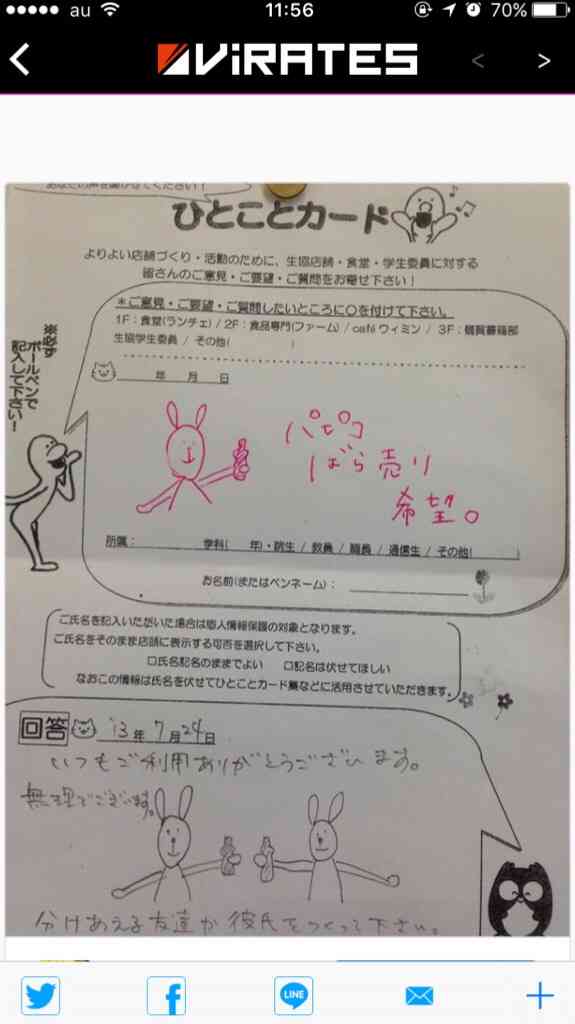 au 11:56 70%
ViRATES
ひとことカード
よりよい店舗づくり・活動のために、生協店舗・食堂・学生委員に対する
皆さんのご意見・ご要望・ご質問をお寄せ下さい！
＊ご意見・ご要望・ご質問したいところに○を付けて下さい。
1F：食堂(ランチェ) / 2F：食品専門(ファーム) / caféウィミン / 3F：購買書籍部
生協学生委員 / その他(　　　)
※必ず
ボールペンで
記入して下さい！
年　月　日
パピコ
ばら売り
希望。
所属：　　　学科(　年)・院生 / 教員 / 職員 / 通信生 / その他(　　　)
お名前(またはペンネーム)：
ご氏名を記入いただいた場合は個人情報保護の対象となります。
ご氏名をそのまま店頭に表示する可否を選択して下さい。
□氏名記名のままでよい　□記名は伏せてほしい
なおこの情報は氏名を伏せてひとことカード集などに活用させていただきます。
回答　'13年 7月 24日
いつもご利用ありがとうございます。
無理でございます。
分けあえる友達か彼氏をつくって下さい。
LINE